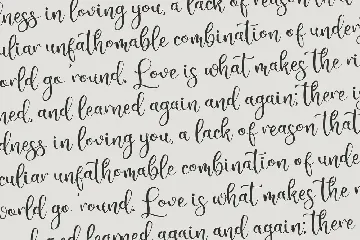 ness in loving you, a lack of reason that
culiar unfathomable combination of under
world go round. Love is what makes the ri
ned, and learned again and again; there is
dness in loving you, a lack of reason that
culiar unfathomable combination of unde
world go round. Love is what makes the
and learned again and again; there